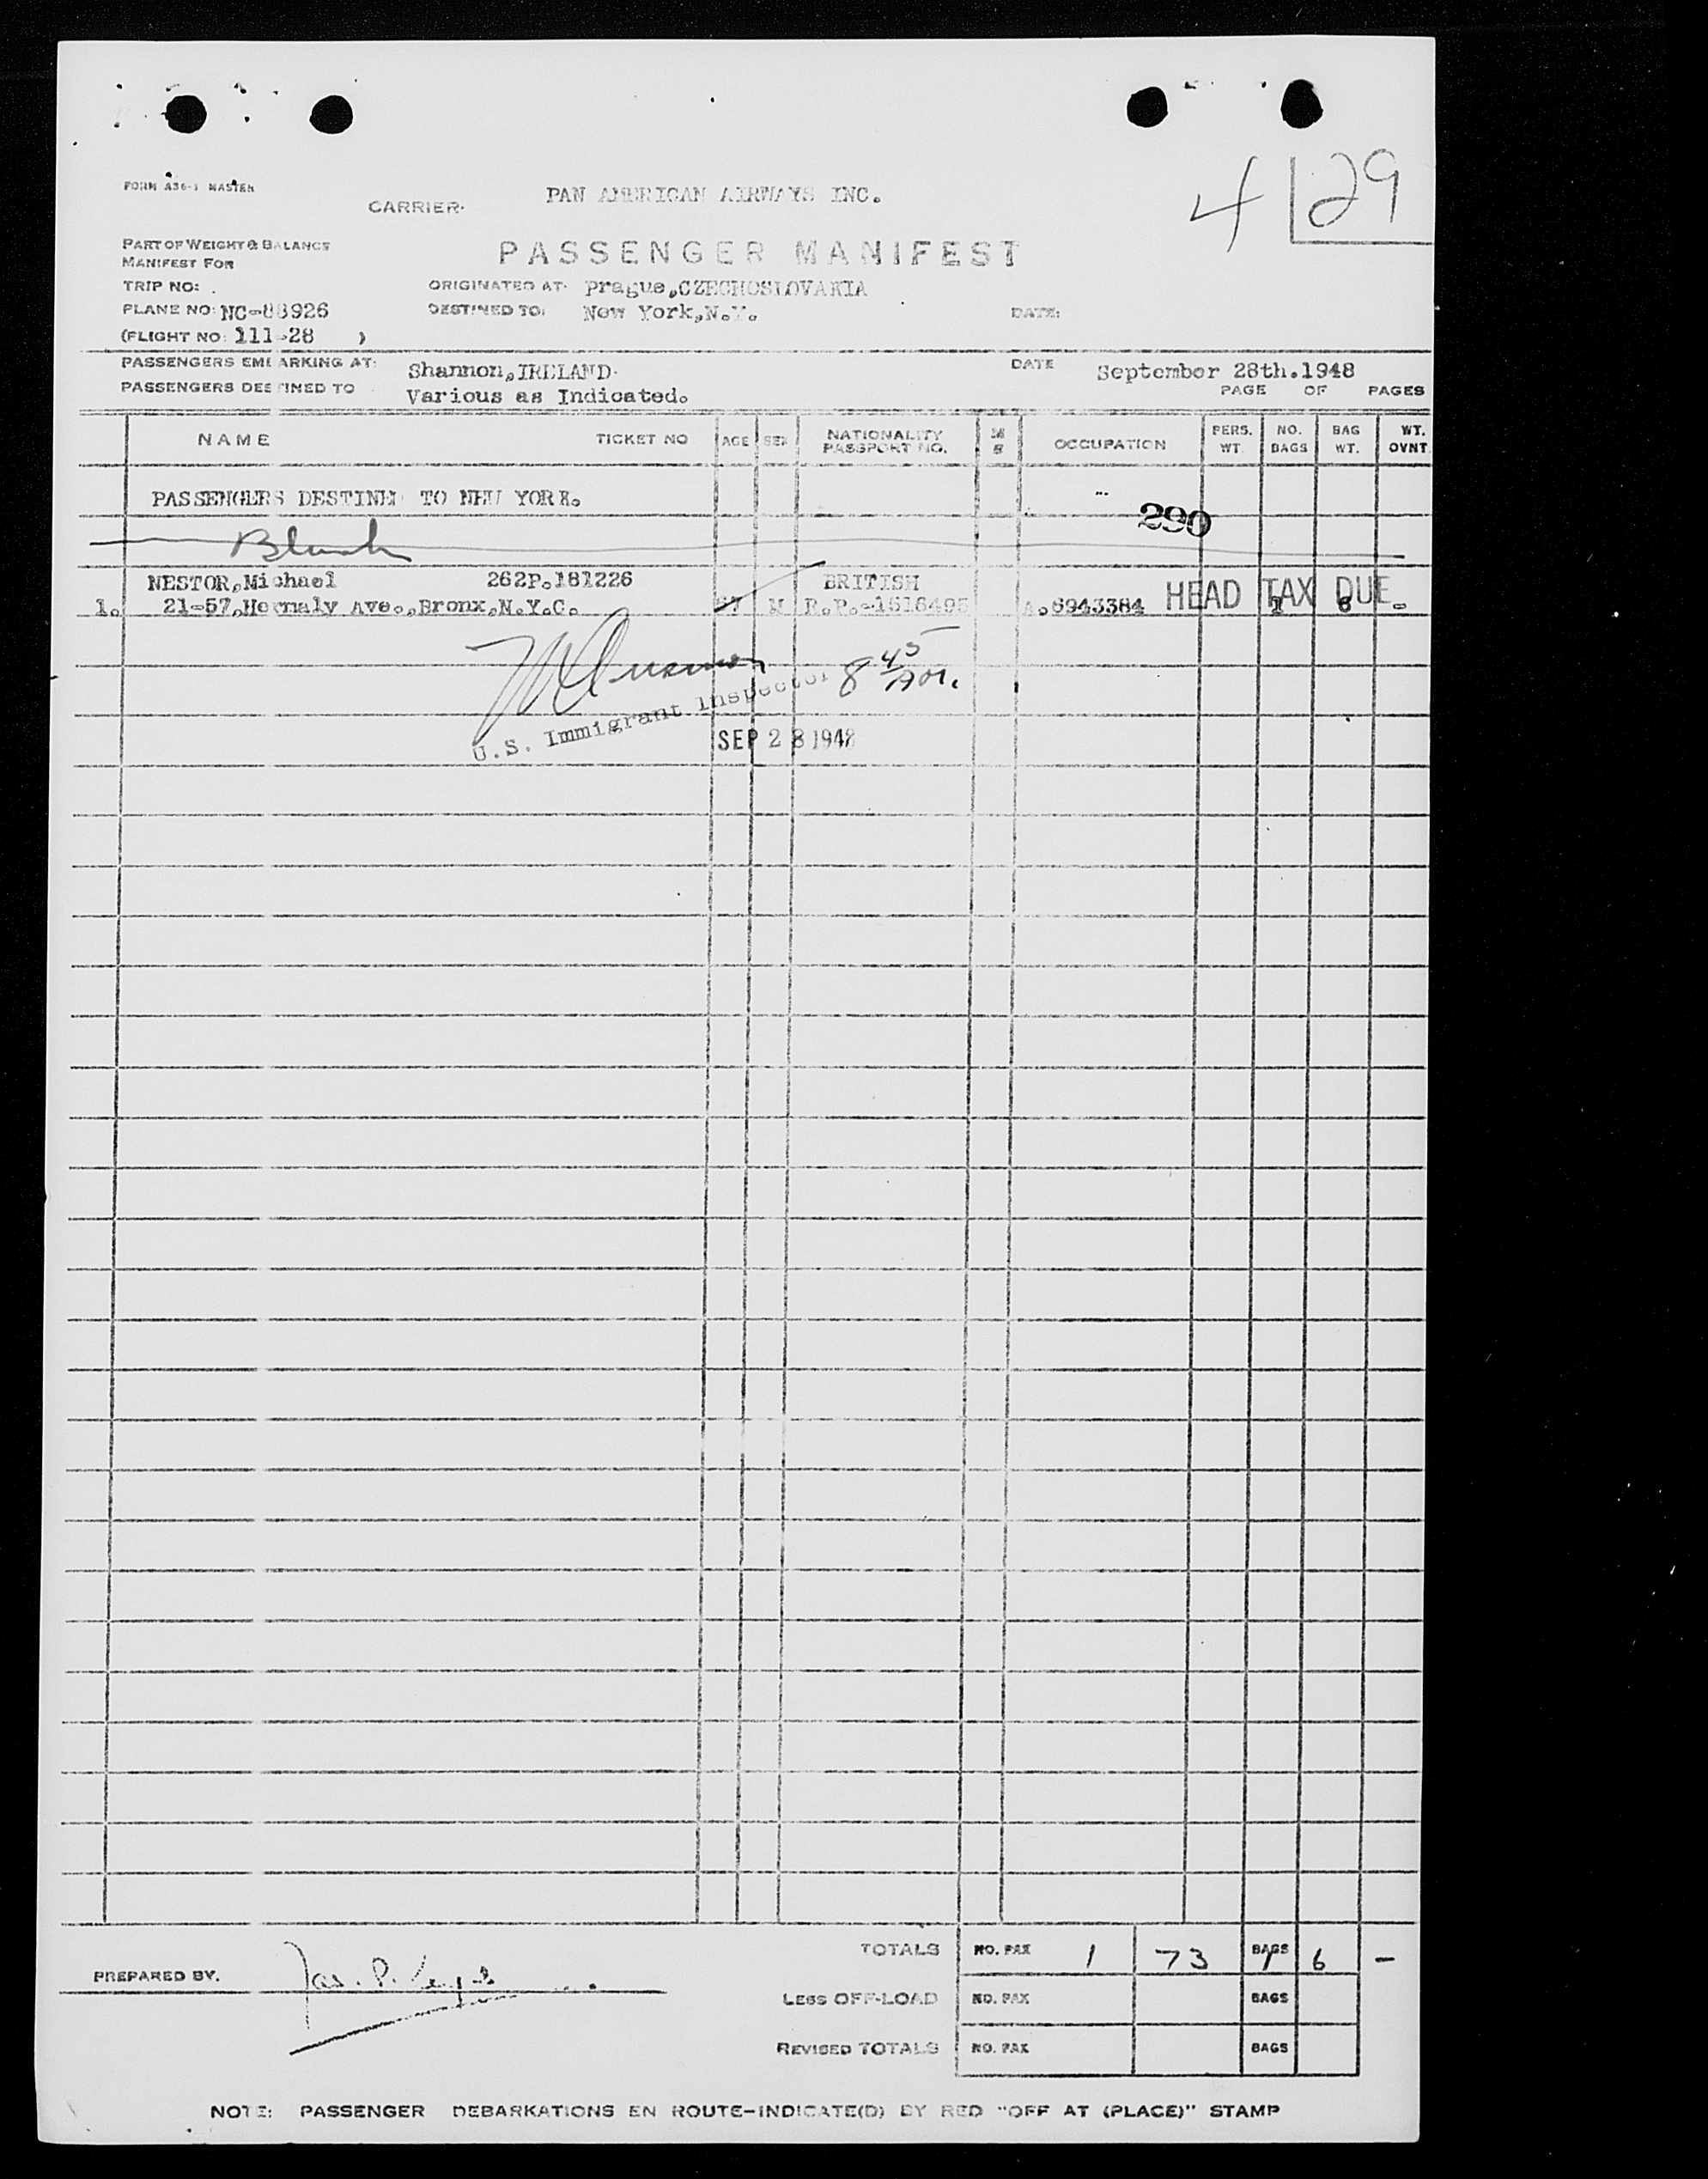 4 | 29
FORM A36-1 MASTER
CARRIER· PAN AMERICAN AIRWAYS INC.
PART OF WEIGHT & BALANCE
MANIFEST FOR
PASSENGER MANIFEST
TRIP NO: .
ORIGINATED AT· Prague,CZECHOSLOVAKIA
PLANE NO: NC-88926
DESTINED TO: New York,N.Y. DATE:
(FLIGHT NO: 111-28 )
PASSENGERS EMBARKING AT: Shannon,IRELAND. DATE September 28th.1948
PASSENGERS DESTINED TO Various as Indicated. PAGE OF PAGES
NAME TICKET NO AGE SEX NATIONALITY PASSPORT NO. OCCUPATION PERS. WT. NO. BAGS BAG WT. WT. OVNT
PASSENGERS DESTINED TO NEW YORK.
290
Blank
NESTOR,Michael 262P.181226 BRITISH
1. 21-57, Ave.,Bronx,N.Y.C. M R.P.-1516495 A.6943384 HEAD TAX DUE 1 6 -
8 45 AM.
U.S. Immigrant Inspector
SEP 28 1948
TOTALS NO. PAX 1 73 BAGS 1 6 -
PREPARED BY. Jas. P.
LESS OFF-LOAD NO. PAX BAGS
REVISED TOTALS NO. PAX BAGS
NOTE: PASSENGER DEBARKATIONS EN ROUTE-INDICATE(D) BY RED "OFF AT (PLACE)" STAMP